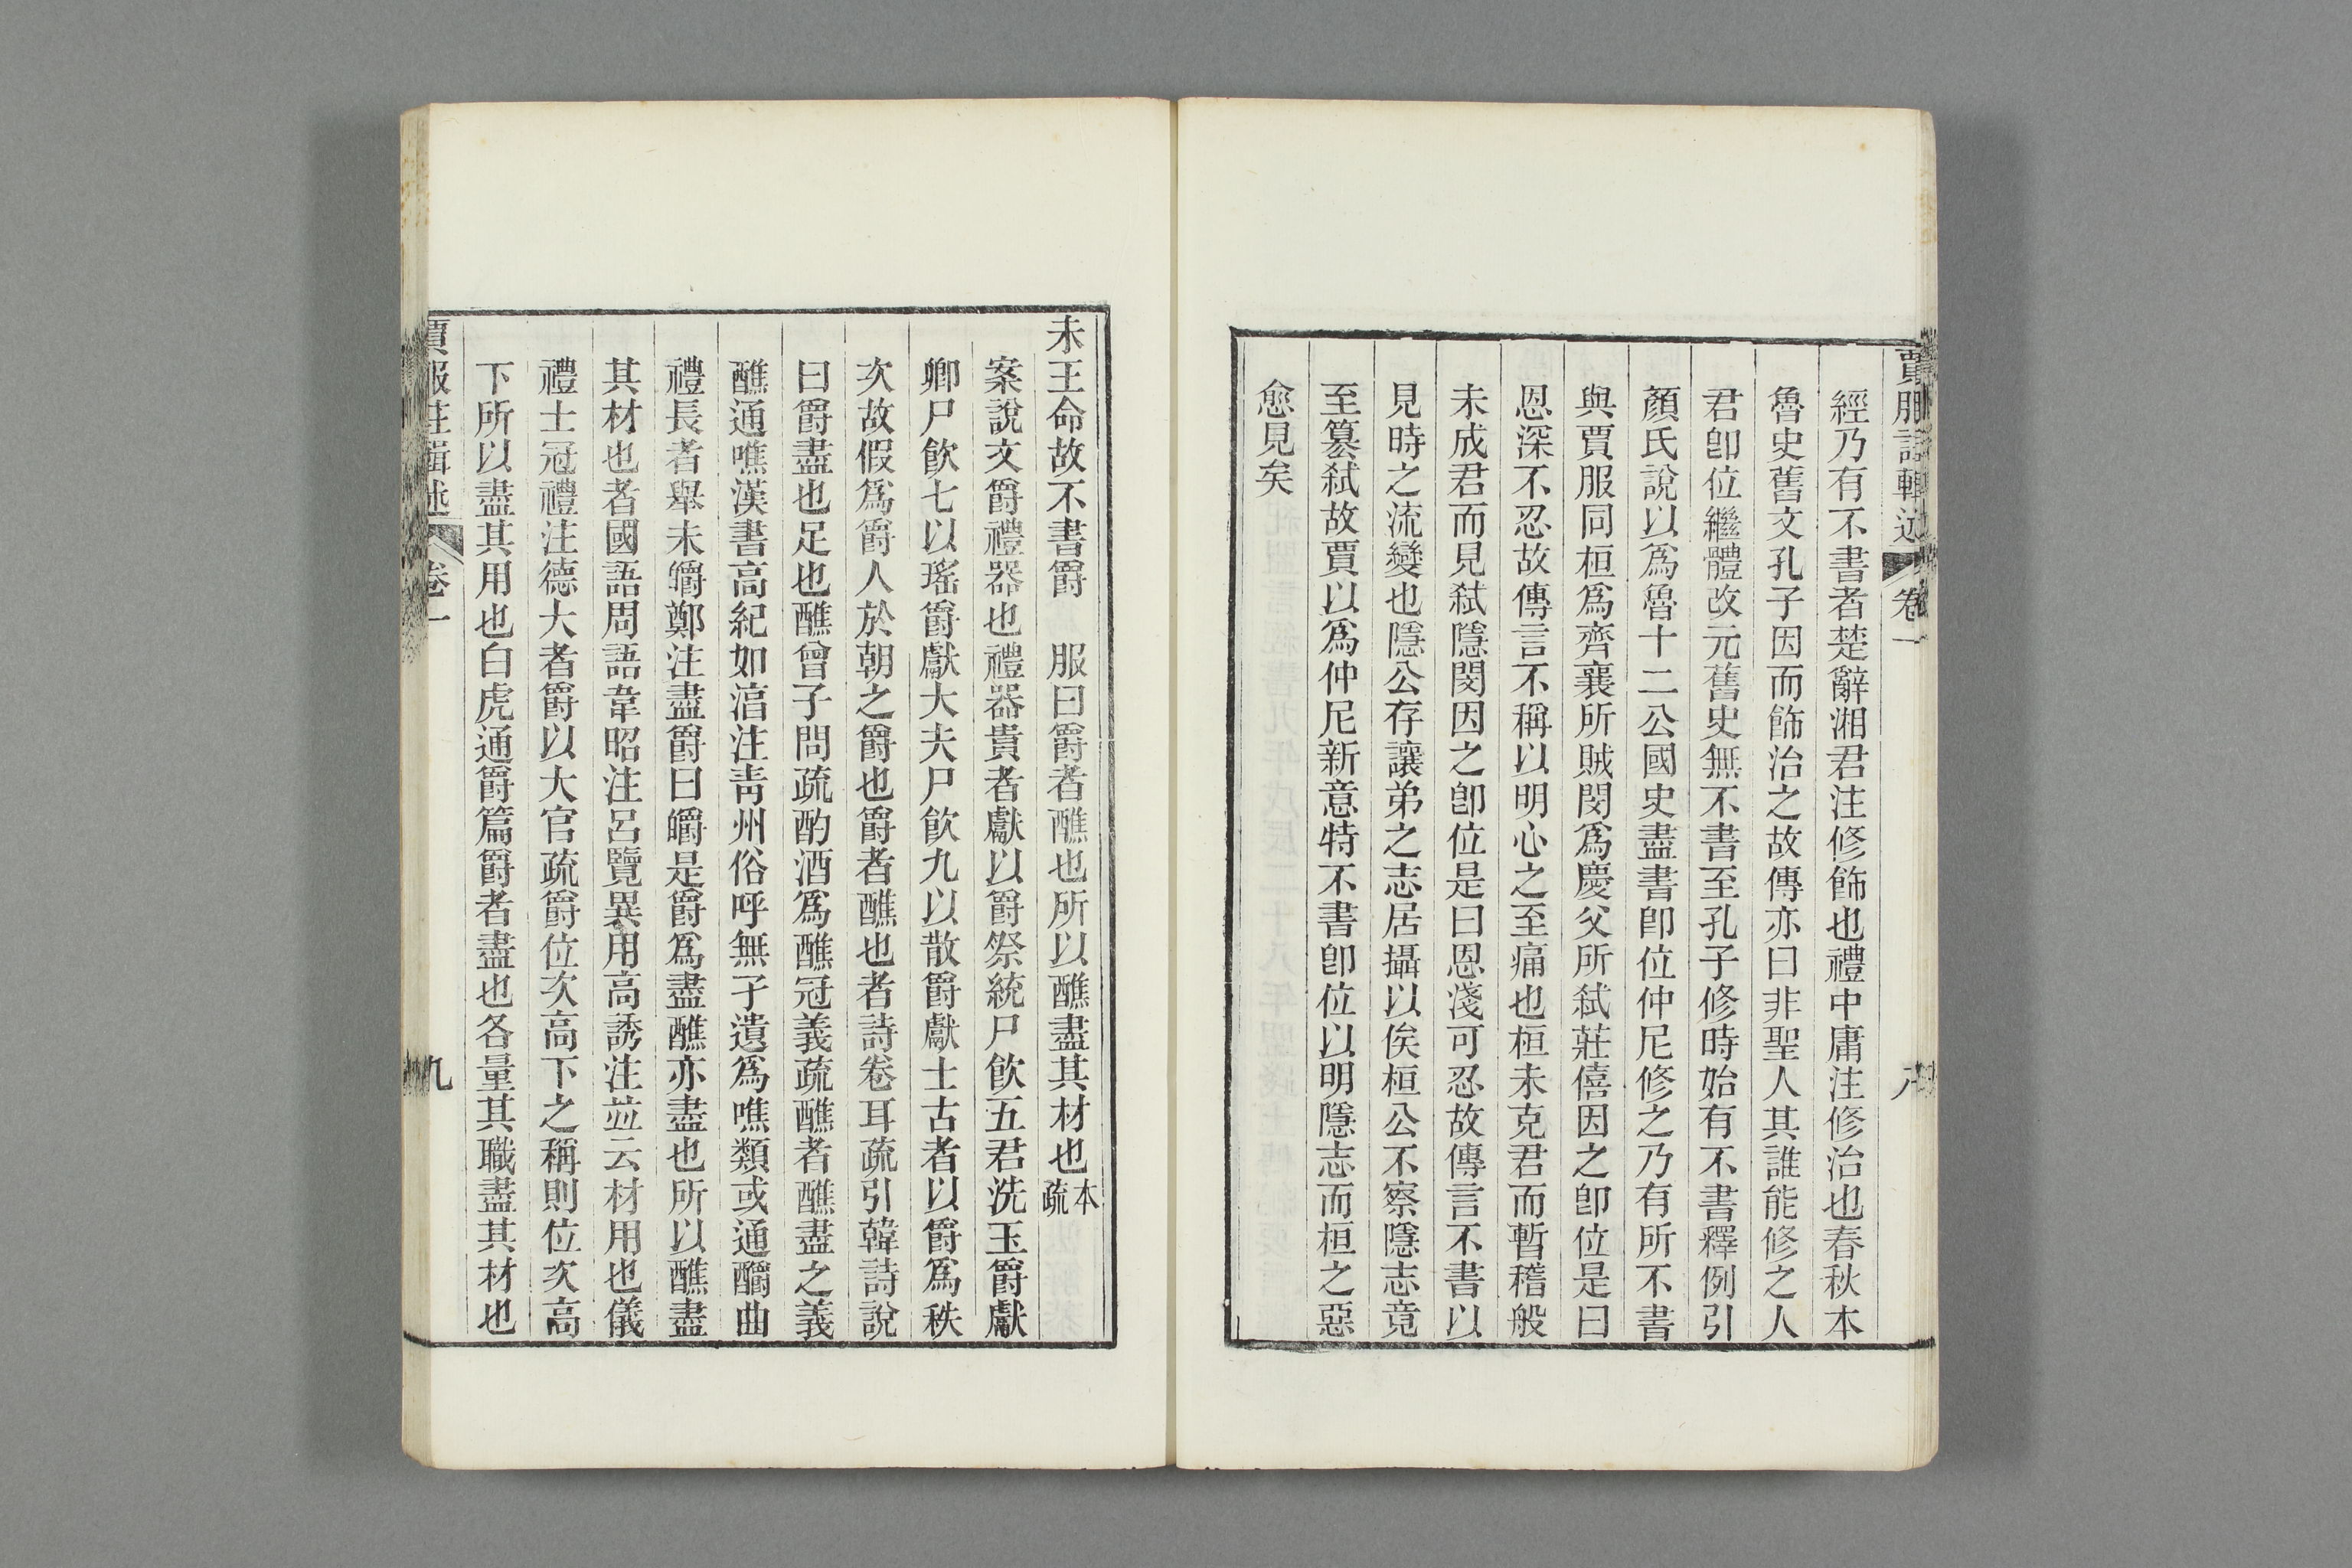 賈服注輯述 卷一 八
經乃有不書者楚辭湘君注修飾也禮中庸注修治也春秋本
魯史舊文孔子因而飾治之故傳亦曰非聖人其誰能修之人
君卽位繼體改元舊史無不書至孔子修時始有不書釋例引
顏氏說以爲魯十二公國史盡書卽位仲尼修之乃有所不書
與賈服同桓爲齊襄所賊閔爲慶父所弑莊僖因之卽位是曰
恩深不忍故傳言不稱以明心之至痛也桓未克君而暫稽般
未成君而見弑隱閔因之卽位是曰恩淺可忍故傳言不書以
見時之流變也隱公存讓弟之志居攝以俟桓公不察隱志竟
至篡弑故賈以爲仲尼新意特不書卽位以明隱志而桓之惡
愈見矣
未王命故不書爵 服曰爵者醮也所以醮盡其材也本疏
案說文爵禮器也禮器貴者獻以爵祭統尸飮五君洗玉爵獻
卿尸飮七以瑤爵獻大夫尸飮九以散爵獻士古者以爵爲秩
次故假爲爵人於朝之爵也爵者醮也者詩卷耳疏引韓詩說
曰爵盡也足也醮曾子問疏酌酒爲醮冠義疏醮者醮盡之義
醮通噍漢書高紀如湻注靑州俗呼無孑遺爲噍類或通釂曲
禮長者舉未釂鄭注盡爵曰釂是爵爲盡醮亦盡也所以醮盡
其材也者國語周語韋昭注呂覽異用高誘注並云材用也儀
禮士冠禮注德大者爵以大官疏爵位次高下之稱則位次高
下所以盡其用也白虎通爵篇爵者盡也各量其職盡其材也
賈服注輯述 卷一 九